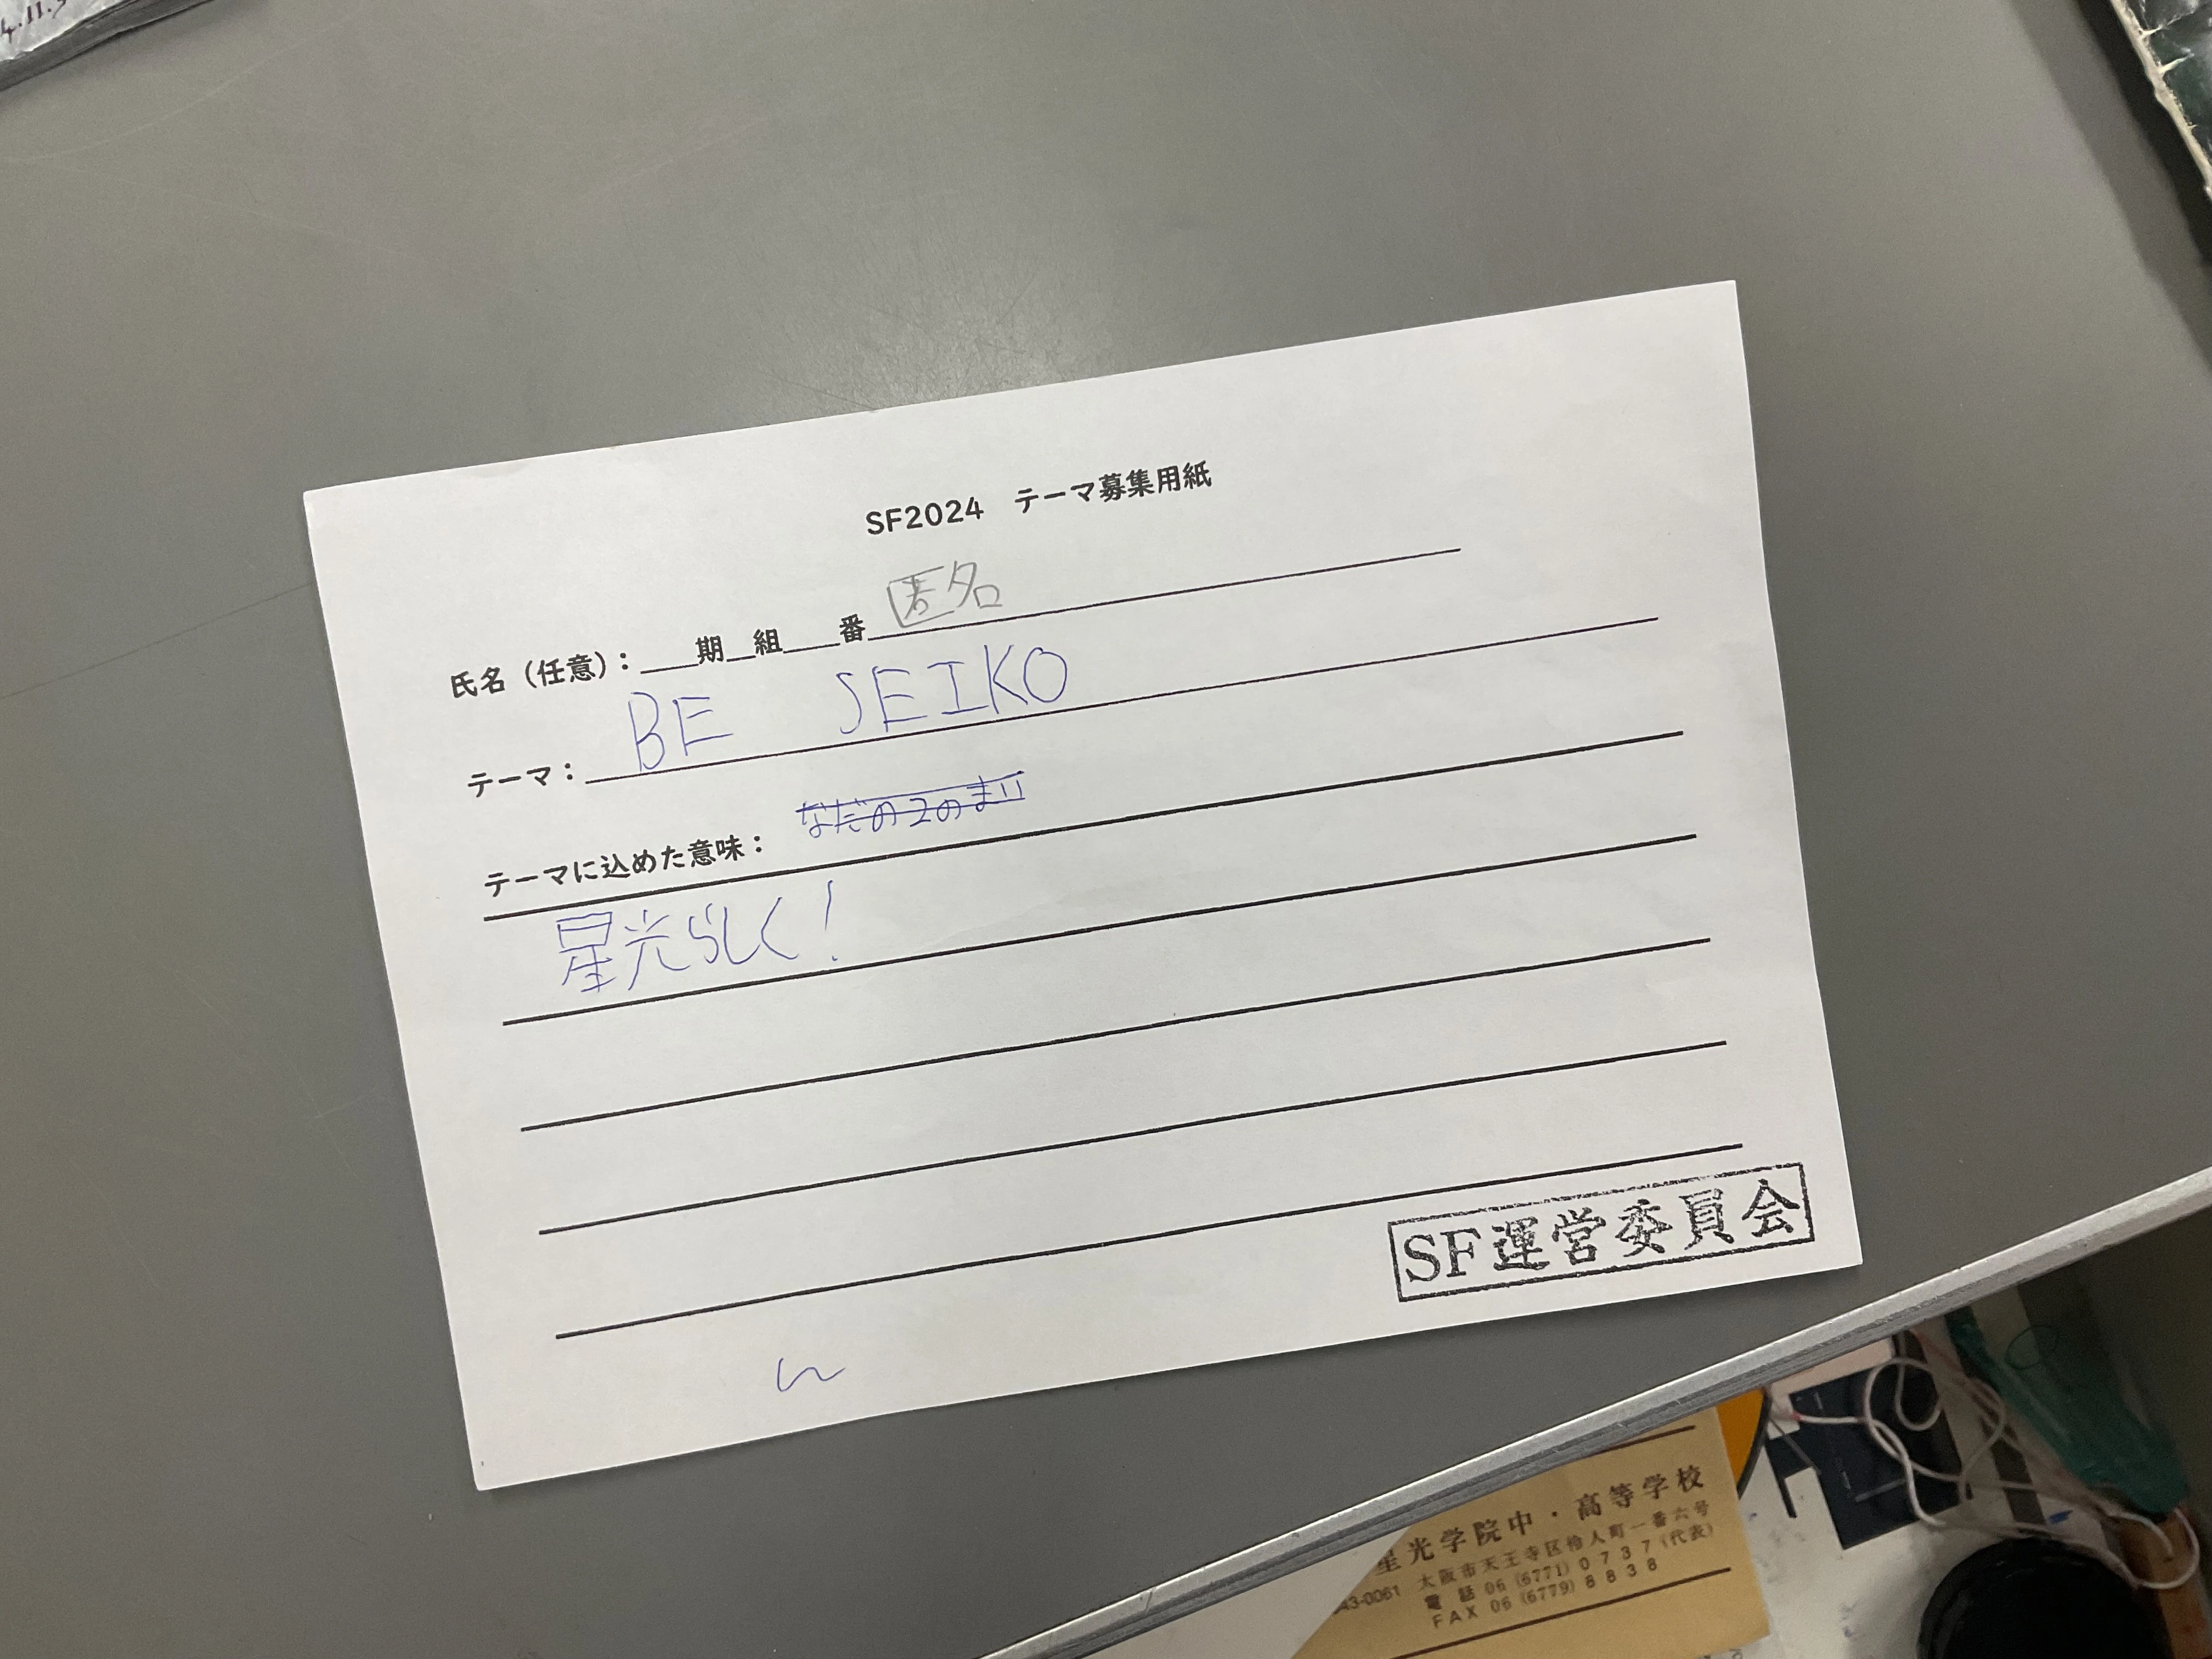 SF2024 テーマ募集用紙
氏名（任意）：___期__組___番 匿名
テーマ： BE SEIKO
テーマに込めた意味：
星光らしく！
SF運営委員会
星光学院中・高等学校
43-0061 大阪市天王寺区伶人町一番六号
電話 06 (6771) 0737 (代表)
FAX 06 (6779) 8838